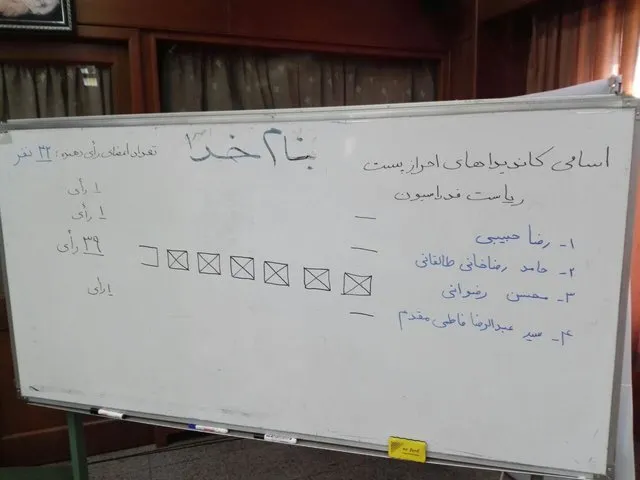 بنام خدا
اسامی کاندیداهای احراز پست
ریاست فدراسیون
تعداد اعضای رأی دهنده: ۴۲ نفر
۱- رضا حبیبی
۱ رأی
۲- حامد رضاخانی طالقانی
۱ رأی
۳- محسن رضوانی
۳۹ رأی
۴- سید عبدالرضا فاطمی مقدم
۱ رأی